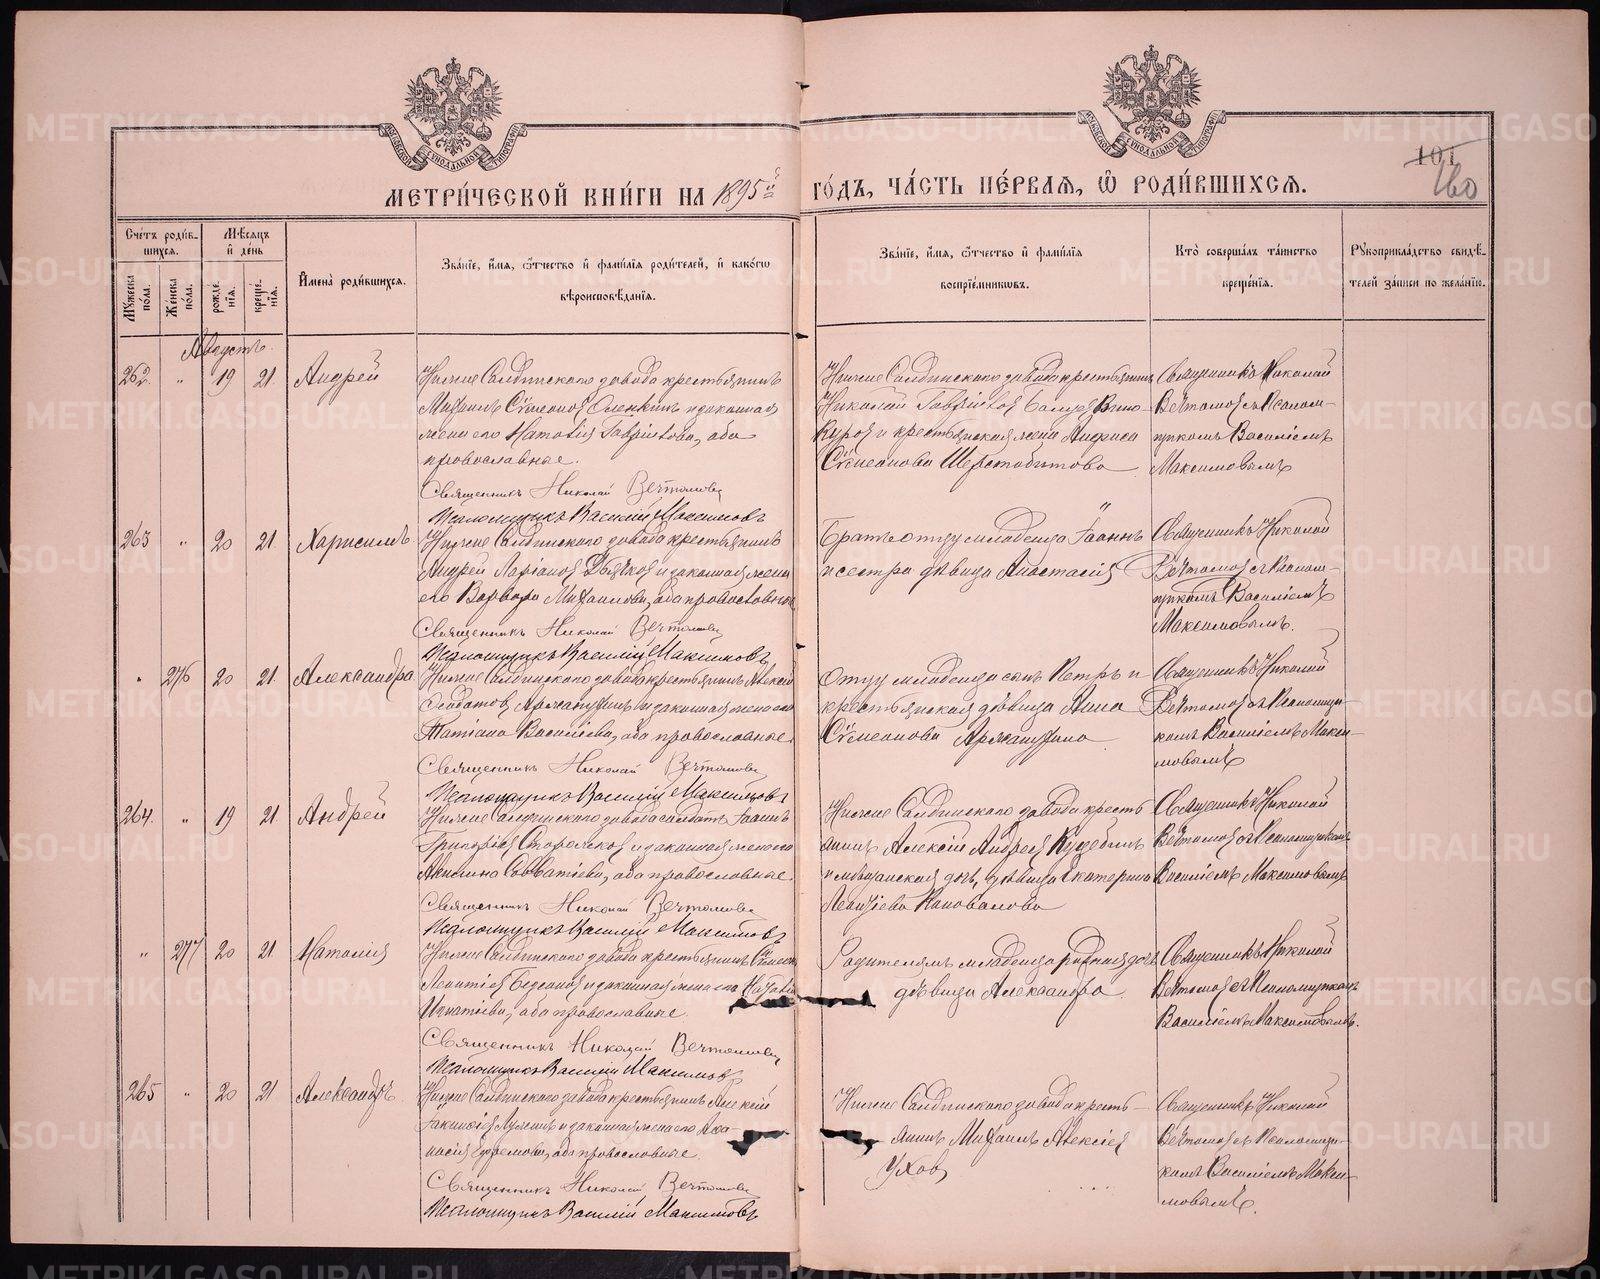 МЕТРИ́ЧЕСКОЙ КНИ́ГИ НА 1895й ГО́ДЪ, ЧА́СТЬ ПЕ́РВАЯ, Ѡ РОДИ́ВШИХСЯ.
101
160
Сче́тъ роди́в-
шихся.
Му́жеска
по́ла.
Же́нска
по́ла.
Мѣ́сяцъ
и де́нь
рожде́-
нїя.
креще́-
нїя.
И́мена роди́вшихся.
Зва́нїе, и́мя, ѻ́тчество и фами́лїя роди́телей, и како́гѡ
вѣроисповѣ́данїя.
Зва́нїе, и́мя, ѻ́тчество и фами́лїя
воспрїе́мниковъ.
Кто̀ соверша́лъ та́инство
креще́нїя.
Рукоприкла́дство свидѣ́-
телей за́писи по жела́нїю.
Августъ.
262. " 19 21. Андрей
Нижне Салдинскаго завода крестьянинъ
Михаилъ Сѵмеоновъ и законная
жена его Наталія Гавріилова, оба
православные.
Священникъ Николай Вечтомовъ
Псаломщикъ Василій Максимовъ
Нижне Салдинскаго завода крестьянинъ
Николай Гавріиловъ
и крестьянская жена
Сѵмеонова Шерстобитова
Священникъ Николай
Вечтомовъ съ Псалом-
щикомъ Василіемъ
Максимовымъ
263 " 20 21. Харисимъ
Нижне Салдинскаго завода крестьянинъ
Андрей и законная жена
его Варвара Михаилова, оба православные
Священникъ Николай Вечтомовъ
Псаломщикъ Василій Максимовъ
Братъ отцу младенца Іоаннъ
и сестра дѣвица Анастасія
Священникъ Николай
Вечтомовъ съ Псалом-
щикомъ Василіемъ
Максимовымъ.
" 276 20 21. Александра
Нижне Салдинскаго завода крестьянинъ Алексій
и законная жена его
Татіана Василіева, оба православные.
Священникъ Николай Вечтомовъ
Псаломщикъ Василій Максимовъ
Отцу младенца сынъ Петръ и
крестьянская дѣвица Анна
Сѵмеонова
Священникъ Николай
Вечтомовъ съ Псаломщи-
комъ Василіемъ Макси-
мовымъ
264. " 19 21. Андрей
Нижне Салдинскаго завода солдатъ Іоаннъ
Григоріевъ и законная жена его
Акилина Савватіева, оба православные.
Священникъ Николай Вечтомовъ
Псаломщикъ Василій Максимовъ
Нижне Салдинскаго завода кресть
янинъ Алексій Андреевъ
и мѣщанская дочь, дѣвица Екатерина
Коновалова
Священникъ Николай
Вечтомовъ съ Псаломщикомъ
Василіемъ Максимовымъ
" 277 20 21. Наталія
Нижне Салдинскаго завода крестьянинъ Сѵмеонъ
Леонтіевъ и законная жена его Наталія
Игнатіева, оба православные.
Священникъ Николай Вечтомовъ
Псаломщикъ Василій Максимовъ
Родителямъ младенца родная дочь
дѣвица Александра.
Священникъ Николай
Вечтомовъ съ Псаломщикомъ
Василіемъ Максимовымъ.
265 " 20 21 Александръ
Нижне Салдинскаго завода крестьянинъ Алексій
и законная жена его
Ефремова, оба православные.
Священникъ Николай Вечтомовъ
Псаломщикъ Василій Максимовъ
Нижне Салдинскаго завода кресть-
янинъ Михаилъ Алексіевъ
Уховъ
Священникъ Николай
Вечтомовъ съ Псаломщи-
комъ Василіемъ Макси-
мовымъ.
METRIKI.GASO-URAL.RU